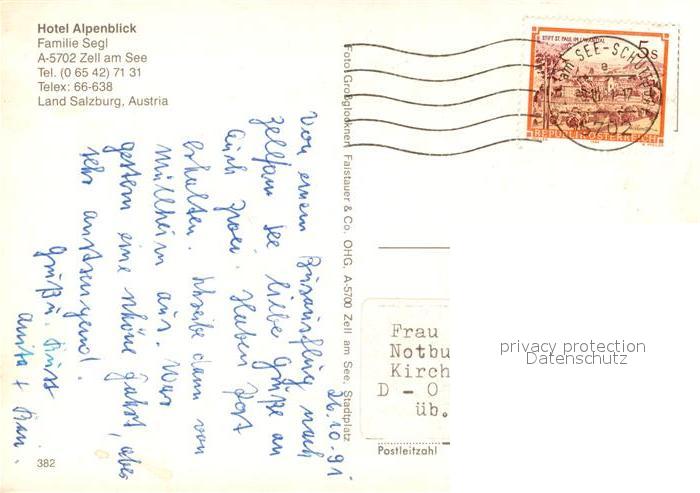 Hotel Alpenblick
Familie Segl
A-5702 Zell am See
Tel. (0 65 42) 71 31
Telex: 66-638
Land Salzburg, Austria
STIFT ST. PAUL IM LAVANTTAL
5s
REPUBLIK ÖSTERREICH
am SEE-SCHÜTTDORF
a
5702
Foto Großglockner, Faistauer & Co. OHG, A-5700 Zell am See, Stadtplatz
26.10.91
Von einem Busausflug nach
Zell am See liebe Grüße an
Euch zwei. Haben Post
erhalten. Schreibe dann von
Müllheim aus. War
gestern eine schöne Fahrt, aber
sehr anstrengend!
Gruß u. Kuss
Anita +
Frau
Notbu
Kirch
D - O
üb.
Postleitzahl
382
privacy protection
Datenschutz